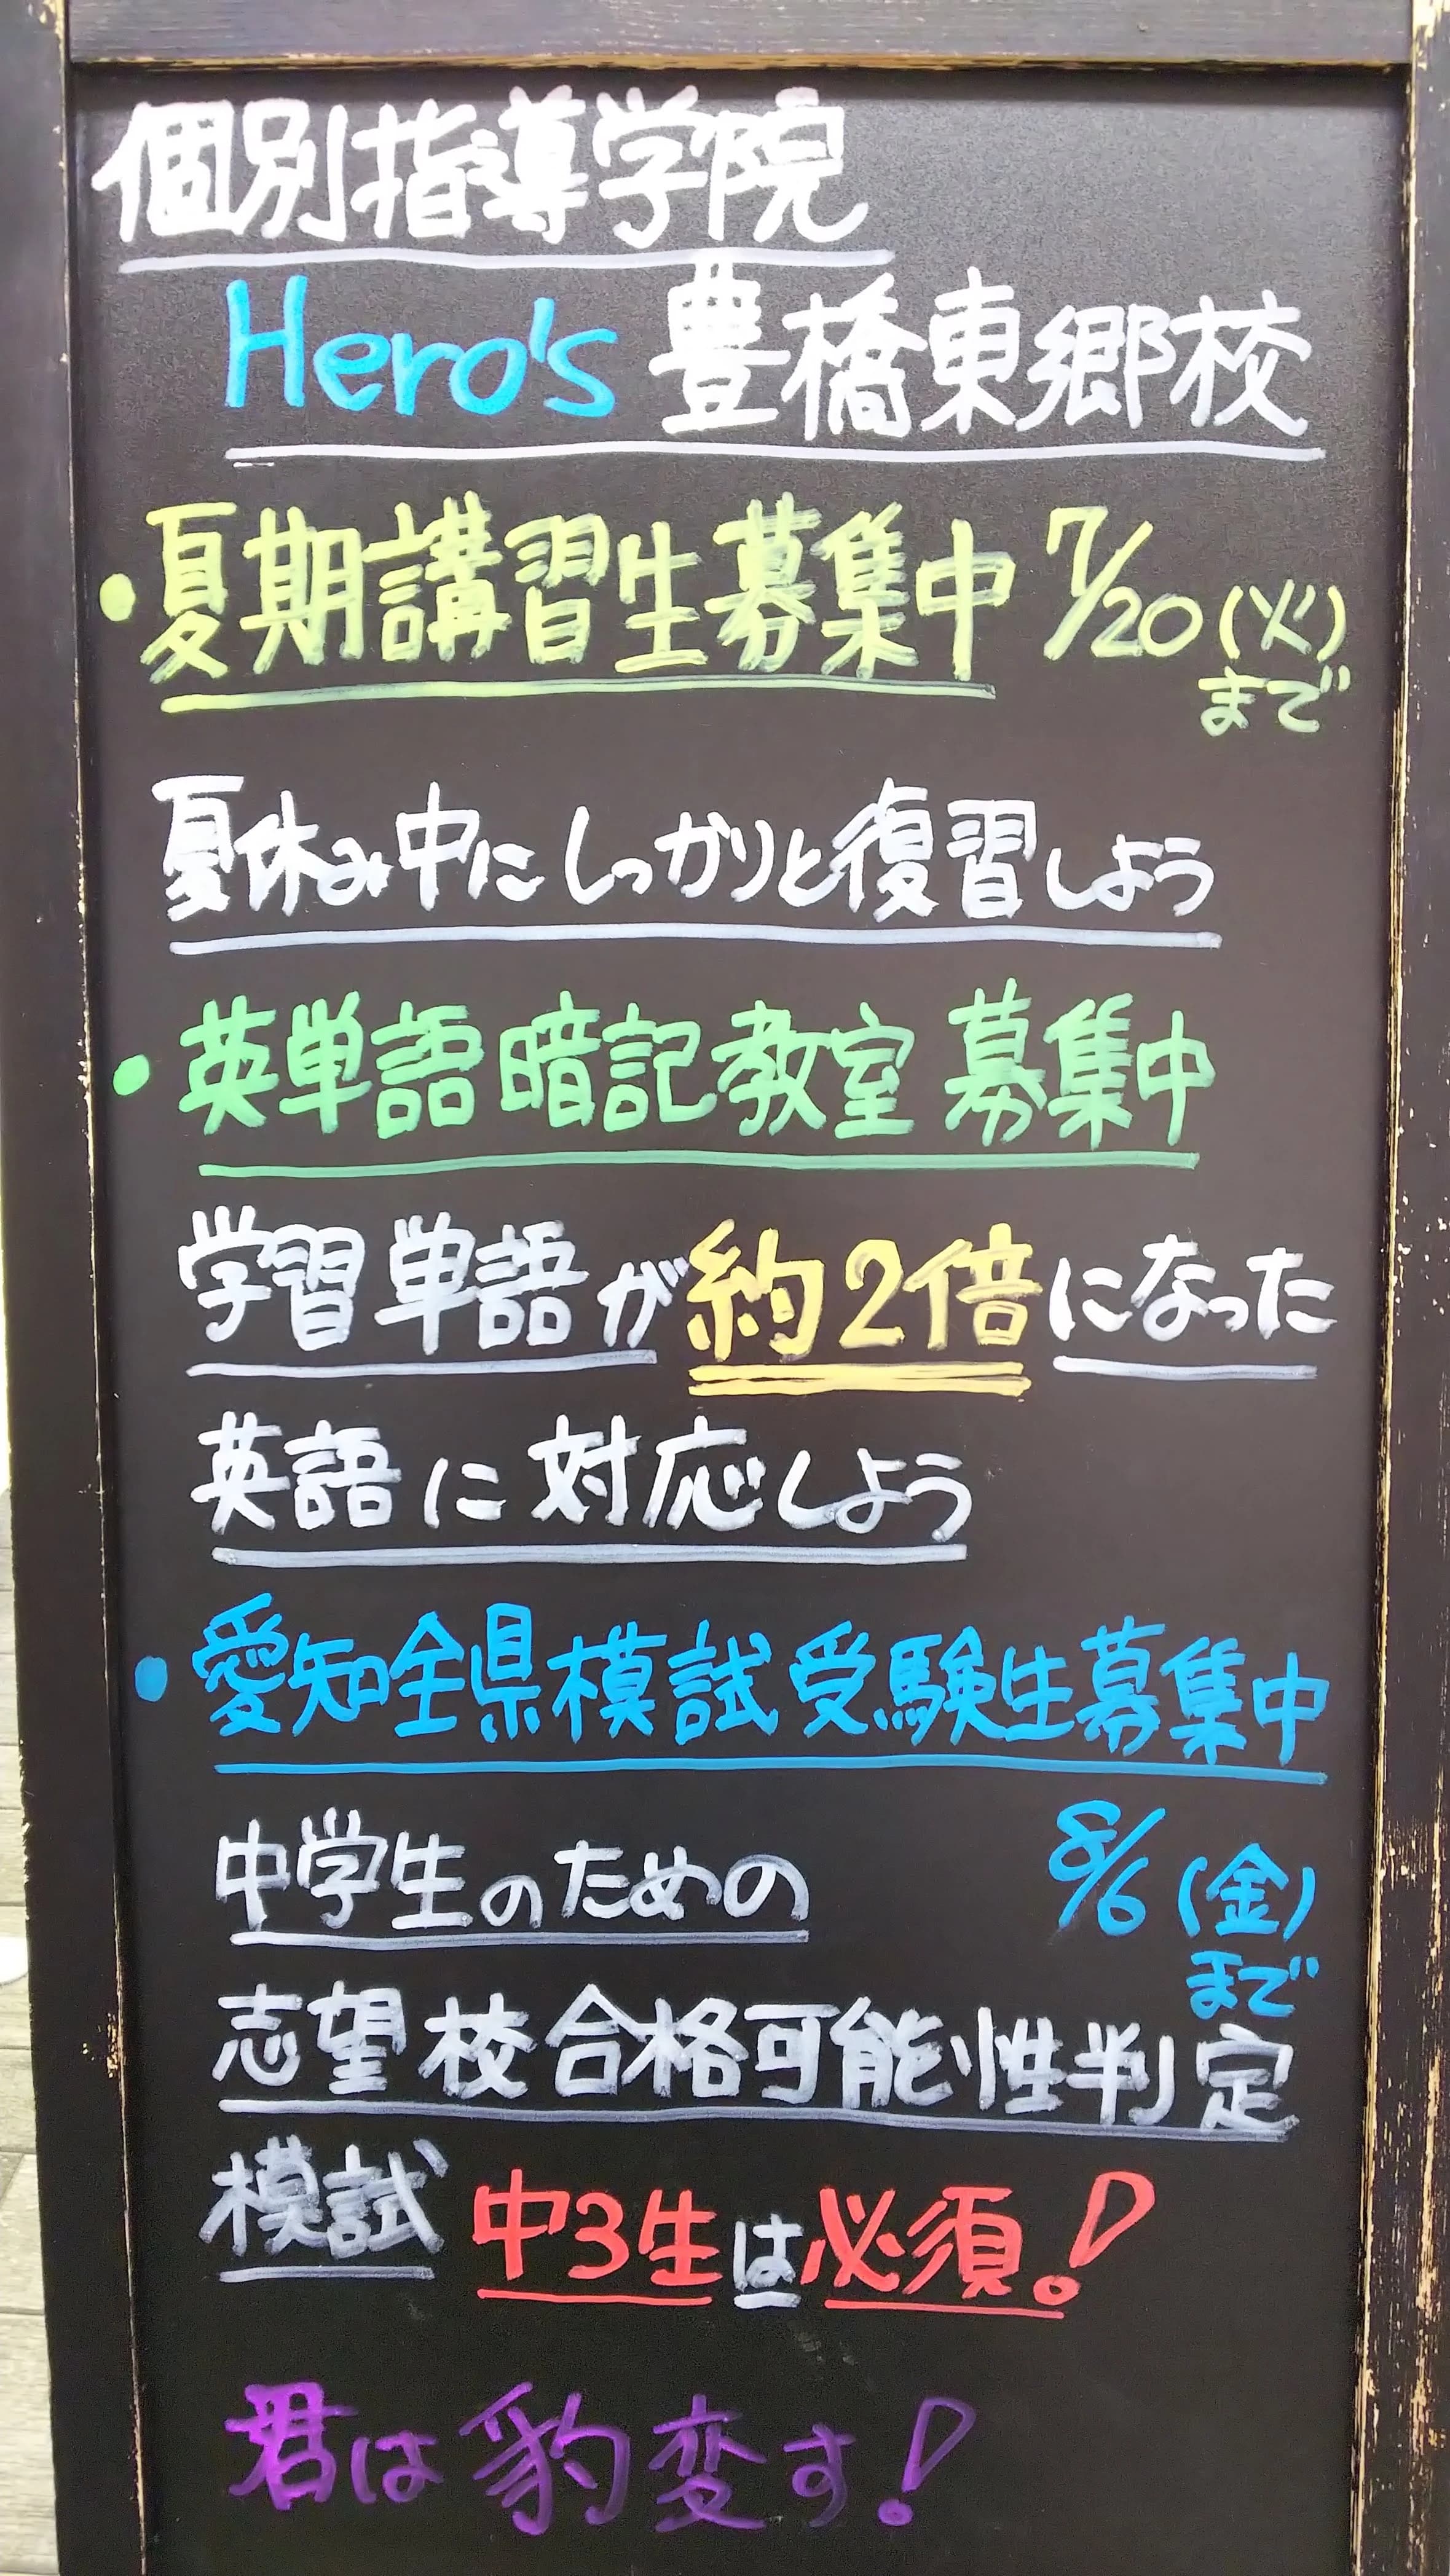 個別指導学院
Hero's 豊橋東郷校
・夏期講習生募集中 7/20(火)
まで
夏休み中にしっかりと復習しよう
・英単語暗記教室 募集中
学習単語が約2倍になった
英語に対応しよう
・愛知全県模試受験生募集中
8/6(金)
まで
中学生のための
志望校合格可能性判定
模試 中3生は必須!
君は豹変す!